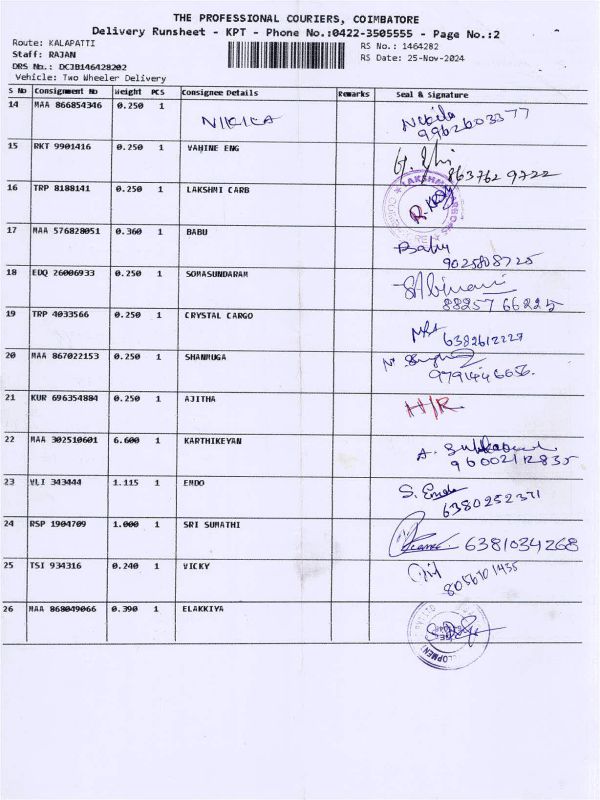 THE PROFESSIONAL COURIERS, COIMBATORE
Delivery Runsheet - KPT - Phone No.:0422-3505555 - Page No.:2
Route: KALAPATTI
RS No.: 1464282
Staff: RAJAN
RS Date: 25-Nov-2024
DRS No.: DCJB146428202
Vehicle: Two Wheeler Delivery
S No Consignment No Weight PCS Consignee Details Remarks Seal & Signature
14 MAA 866854346 0.250 1 NIKILA Nikila
9962603377
15 RKT 9901416 0.250 1 VAHINE ENG
863762 9722
16 TRP 8188141 0.250 1 LAKSHMI CARB
17 MAA 576828051 0.360 1 BABU Babu
9025808725
18 EDQ 26006933 0.250 1 SOMASUNDARAM
88257 66225
19 TRP 4033566 0.250 1 CRYSTAL CARGO
6382612227
20 MAA 867022153 0.250 1 SHANMUGA
9791446656.
21 KUR 696354884 0.250 1 AJITHA H/R
22 MAA 302510601 6.600 1 KARTHIKEYAN A.
9600212835
23 VLI 343444 1.115 1 EMDO S.
6380252371
24 RSP 1904709 1.000 1 SRI SUMATHI 6381034268
25 TSI 934316 0.240 1 VICKY
8056701435
26 MAA 868049066 0.390 1 ELAKKIYA